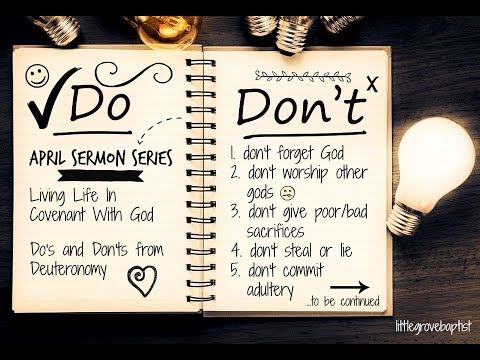 ✓Do
APRIL SERMON SERIES
Living Life In
Covenant With God
Do's and Don'ts from
Deuteronomy
Don't x
1. don't forget God
2. don't worship other
gods
3. don't give poor/bad
sacrifices
4. don't steal or lie
5. don't commit
adultery
...to be continued
littlegrovebaptist